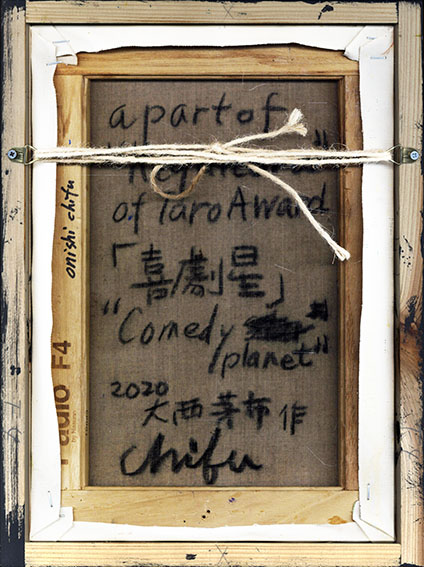 a part of
of Taro Award
「喜劇星」
"Comedy
planet"
2020
大西茅布 作
chifu
onishi chifu
F4